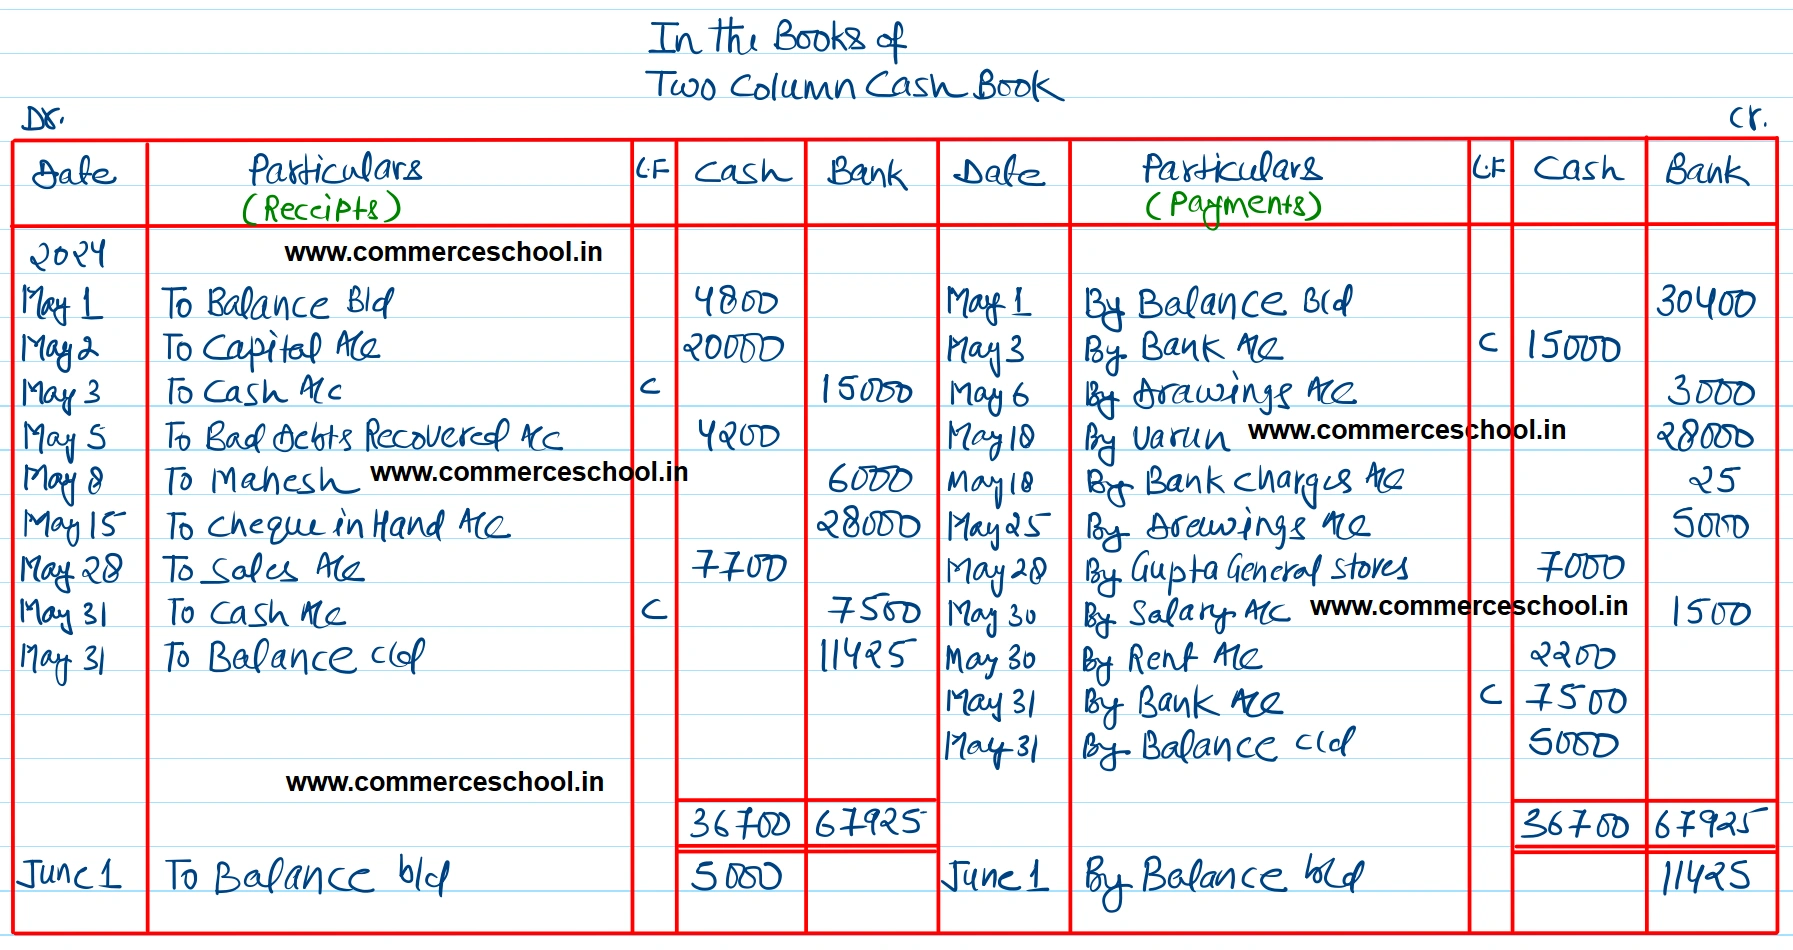 In the Books of
Two Column Cash Book
Dr. Cr.
Date Particulars L.F Cash Bank Date Particulars L.F Cash Bank
(Receipts) (Payments)
2024 www.commerceschool.in
May 1 To Balance B/d 4800 May 1 By Balance B/d 30400
May 2 To Capital A/c 20000 May 3 By Bank A/c C 15000
May 3 To Cash A/c C 15000 May 6 By Drawings A/c 3000
May 5 To Bad debts Recovered A/c 4200 May 18 By Varun www.commerceschool.in 28000
May 8 To Mahesh www.commerceschool.in 6000 May 18 By Bank charges A/c 25
May 15 To cheque in Hand A/c 28000 May 25 By Drawings A/c 5000
May 28 To Sales A/c 7700 May 28 By Gupta General Stores 7000
May 31 To Cash A/c C 7500 May 30 By Salary A/c www.commerceschool.in 1500
May 31 To Balance c/d 11425 May 30 By Rent A/c 2200
May 31 By Bank A/c C 7500
May 31 By Balance c/d 5000
www.commerceschool.in
36700 67925 36700 67925
June 1 To Balance b/d 5000 June 1 By Balance b/d 11425